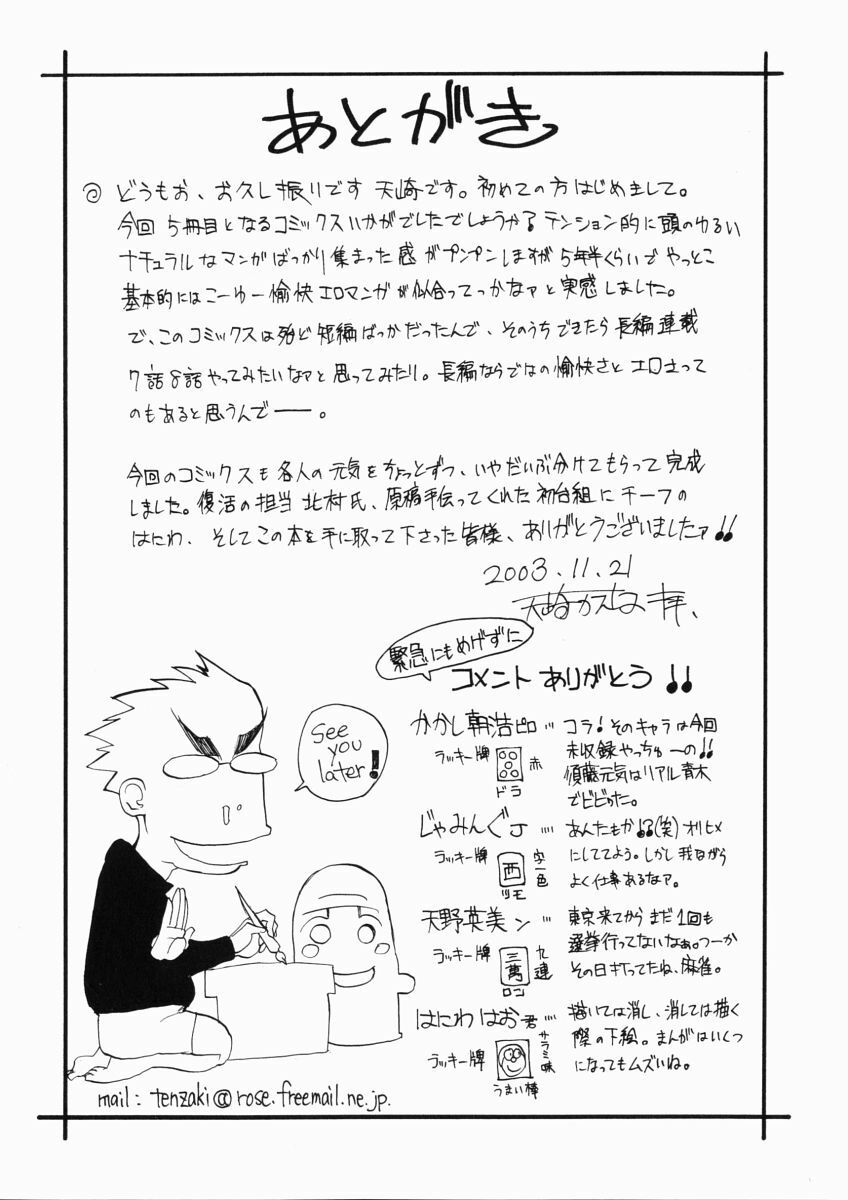 あとがき
どうもお、お久し振りです 天崎です。初めての方はじめまして。
今回 5冊目となるコミックスいかがでしたでしょうか?テンション的に頭のゆるい
ナチュラルなマンガばっかり集まった感がプンプンしますが5年半くらいでやっとこ
基本的にはこーゆー愉快エロマンガが似合ってっかなァと実感しました。
で、このコミックスは殆ど短編ばっかだったんで、そのうちできたら長編連載
7話8話やってみたいなァと思ってみたり。長編ならではの愉快さとエロさって
のもあると思うんでー。
今回のコミックスも各人の元気をちょっとずつ、いやだいぶ分けてもらって完成
しました。復活の担当 北村氏、原稿手伝ってくれた初台組にチーフの
はにわ、そしてこの本を手に取って下さった皆様、ありがとうございましたァ!!
2003.11.21
緊急にもめげずに
コメント ありがとう!!
See
you
later!
かかし朝浩ピロ… コラ!そのキャラは今回
未収録やっちゅーの!!
須藤元気はリアル青木
でビビった。
ラッキー牌
赤
ドラ
じゃみんぐJ… あんたもか!?(笑)オリヒメ
にしててよう。しかし我ながら
よく仕事あるなァ。
ラッキー牌
西
字一色
ツモ
天野英美ン… 東京来てからまだ1回も
選挙行ってないなぁ。つーか
その日打ってたね、麻雀。
ラッキー牌
三萬
九連
ロン
はにわはお君… 描いては消し、消しては描く
際の下絵。まんがはいくつ
になってもムズいね。
ラッキー牌
サラミ味
うまい棒
mail: tenzaki@rose.freemail.ne.jp.